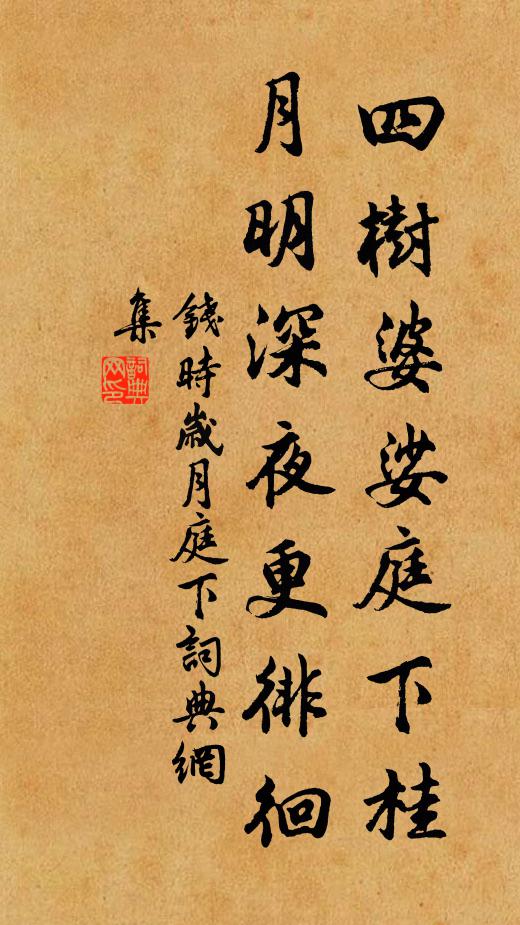 四樹婆娑庭下桂
月明深夜更徘徊
錢時歲月庭下詞典網
集
詞典
网印